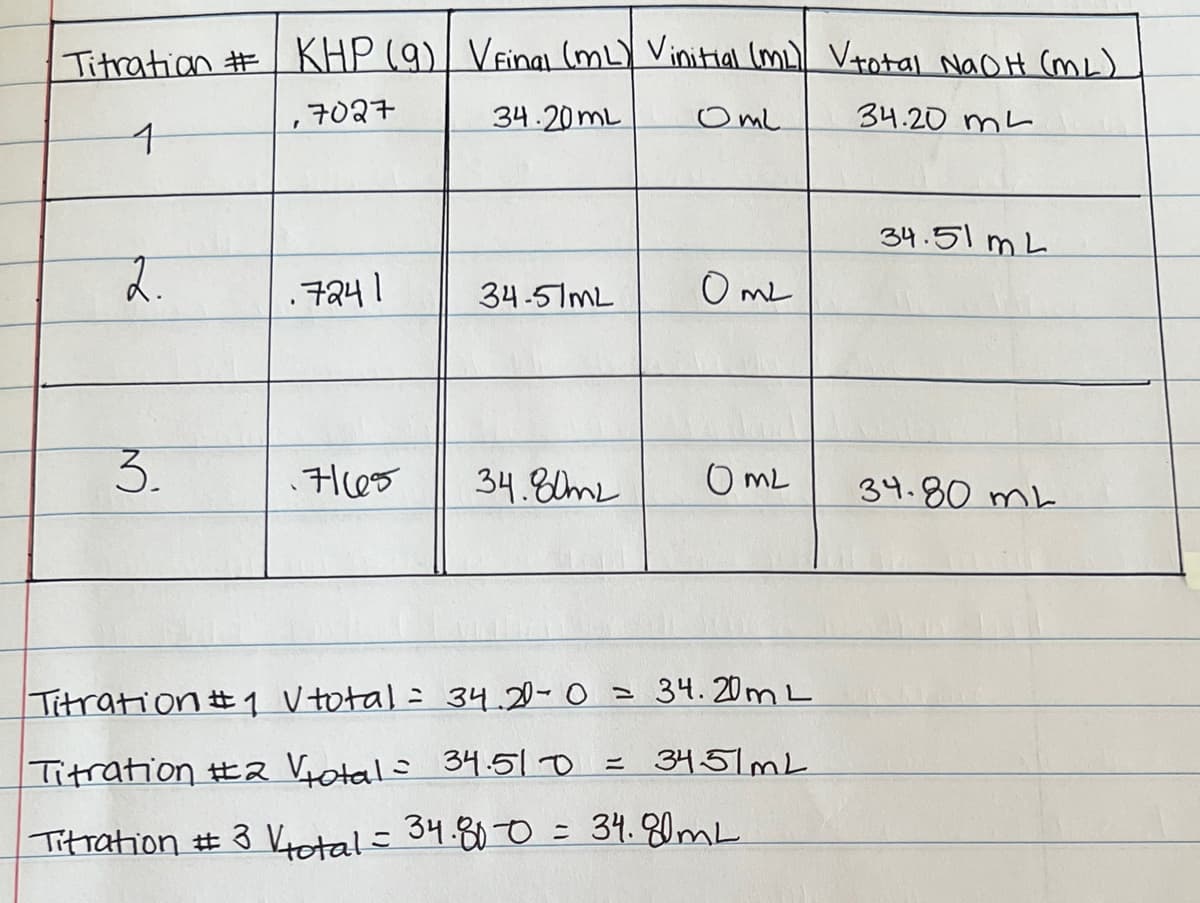 Titration # KHP (g) VFinal (mL) Vinitial (mL) Vtotal NaOH (mL)
1 .7027 34.20mL 0mL 34.20 mL
2. .7241 34.51mL 0 mL 34.51 mL
3. .7165 34.80mL 0 mL 34.80 mL
Titration #1 Vtotal = 34.20-0 = 34.20mL
Titration #2 Vtotal = 34.51-0 = 34.51mL
Titration # 3 Vtotal = 34.80-0 = 34.80mL